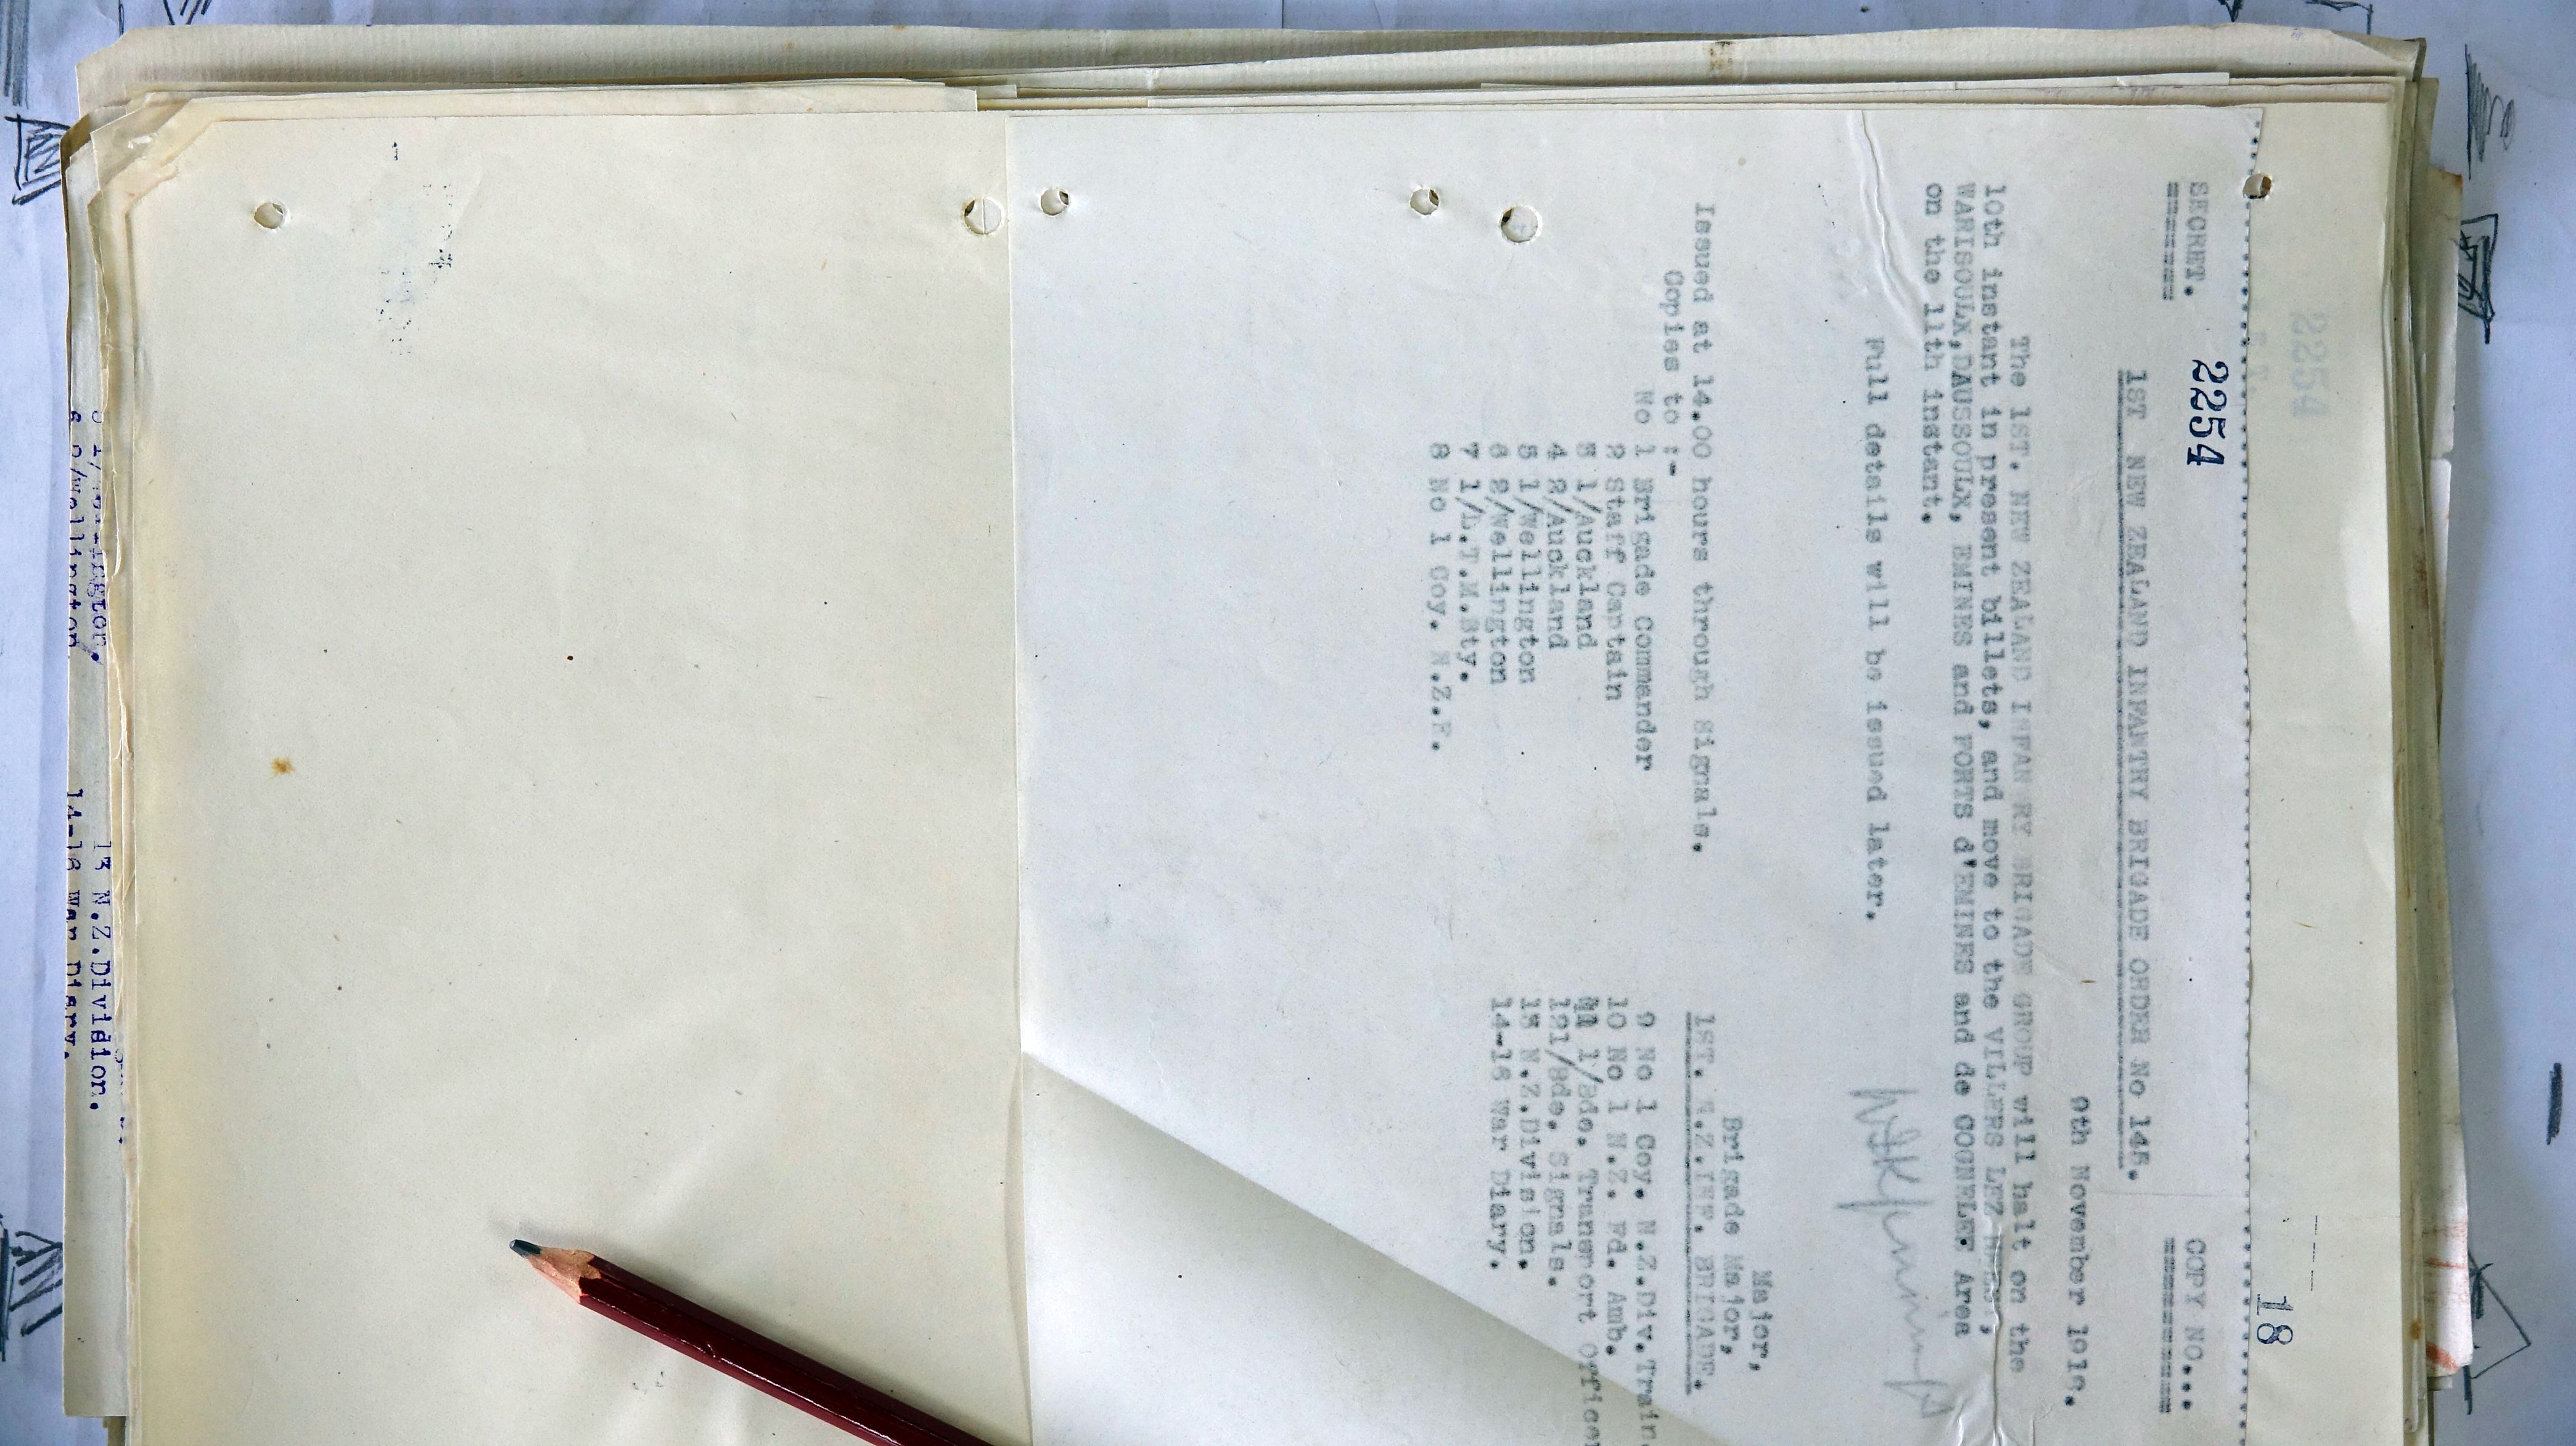 18
2254
SECRET. 2254 COPY NO...
1ST NEW ZEALAND INFANTRY BRIGADE ORDER No 145.
9th November 191
The 1ST. NEW ZEALAND INFAN RY BRIGADE GROUP will halt on the
10th instant in present billets, and move to the VILLERS LEZ
WARISOULX,DAUSSOULX, EMINES and FORTS d'EMINES and de COGNELEE Area
on the 11th instant.
Full details will be issued later.
Major,
Brigade Major,
1ST. N.Z.INF. BRIGADE.
Issued at 14.00 hours through Signals.
Copies to :-
No 1 Brigade Commander
2 Staff Captain
3 1/Auckland
4 2/Auckland
5 1/Wellington
6 2/Wellington
7 1/L.T.M.Bty.
8 No 1 Coy. N.Z.E.
9 No 1 Coy. N.Z.Div.Train.
10 No 1 N.Z. Fd. Amb.
11 1/Bde. Transport Officer
121/Bde. Signals.
13 N.Z.Division.
14-16 War Diary.
13 N.Z.Division.
6 2/Wellington 14-16 War Diary.